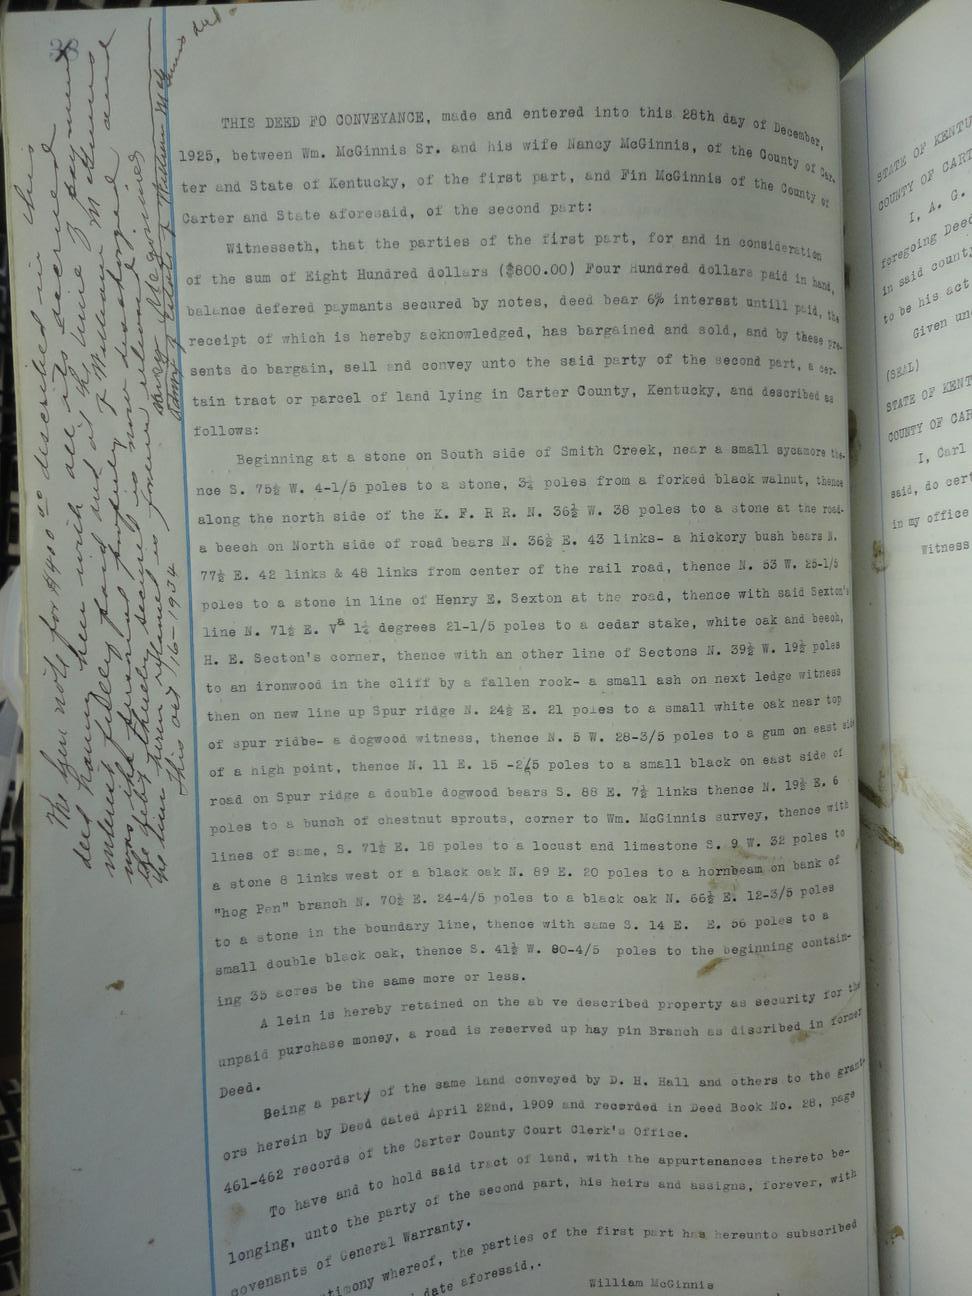 THIS DEED FO CONVEYANCE, made and entered into this 28th day of December,
1925, between Wm. McGinnis Sr. and his wife Nancy McGinnis, of the County of Car-
ter and State of Kentucky, of the first part, and Fin McGinnis of the County of
Carter and State aforesaid, of the second part:
Witnesseth, that the parties of the first part, for and in consideration
of the sum of Eight Hundred dollars ($800.00) Four Hundred dollars paid in hand,
balance defered paymants secured by notes, deed bear 6% interest untill paid, the
receipt of which is hereby acknowledged, has bargained and sold, and by these pre-
sents do bargain, sell and convey unto the said party of the second part, a cer-
tain tract or parcel of land lying in Carter County, Kentucky, and described as
follows:
Beginning at a stone on South side of Smith Creek, near a small sycamore the-
nce S. 75½ W. 4-1/5 poles to a stone, 3¼ poles from a forked black walnut, thence
along the north side of the K. F. R R. N. 36½ W. 38 poles to a stone at the road-
a beech on North side of road bears N. 36½ E. 43 links- a hickory bush bears N.
77½ E. 42 links & 48 links from center of the rail road, thence N. 53 W. 25-1/5
poles to a stone in line of Henry E. Sexton at the road, thence with said Sexton's
line N. 71½ E. Va 1¼ degrees 21-1/5 poles to a cedar stake, white oak and beech,
H. E. Secton's corner, thence with an other line of Sectons N. 39½ W. 19½ poles
to an ironwood in the cliff by a fallen rock- a small ash on next ledge witness
then on new line up Spur ridge N. 24½ E. 21 poles to a small white oak near top
of spur ridbe- a dogwood witness, thence N. 5 W. 28-3/5 poles to a gum on east side
of a high point, thence N. 11 E. 15 -2/5 poles to a small black on east side of
road on Spur ridge a double dogwood bears S. 88 E. 7½ links thence N. 19½ E. 6
poles to a bunch of chestnut sprouts, corner to Wm. McGinnis survey, thence with
lines of same, S. 71½ E. 18 poles to a locust and limestone S. 9 W. 32 poles to
a stone 8 links west of a black oak N. 89 E. 20 poles to a hornbeam on bank of
"hog Pen" branch N. 70½ E. 24-4/5 poles to a black oak N. 66½ E. 12-3/5 poles
to a stone in the boundary line, thence with same S. 14 E. E. 56 poles to a
small double black oak, thence S. 41½ W. 80-4/5 poles to the beginning contain-
ing 35 acres be the same more or less.
A lein is hereby retained on the ab ve described property as security for the
unpaid purchase money, a road is reserved up hay pin Branch as discribed in former
Deed.
Being a party of the same land conveyed by D. H. Hall and others to the grant-
ors herein by Deed dated April 22nd, 1909 and recorded in Deed Book No. 28, page
461-462 records of the Carter County Court Clerk's Office.
To have and to hold said tract of land, with the appurtenances thereto be-
longing, unto the party of the second part, his heirs and assigns, forever, with
covenants of General Warranty.
timony whereof, the parties of the first part has hereunto subscribed
date aforesaid,.
William McGinnis
The lien note for $400.00 described in this
deed having been with all its accrued
interest fully paid out at the time of payment
was the personal property of William McGinnis
the debt thereby secured is now discharged and
the lien herein retained is forever released.
This Oct 16-1934
Admr of Estate of William Mc
Ginnis decd.
STATE OF KENTU
COUNTY OF CART
I, A. G.
foregoing Deed
in said county
to be his act
Given und
(SEAL)
STATE OF KENT
COUNTY OF CAR
I, Carl
said, do cert
in my office
Witness